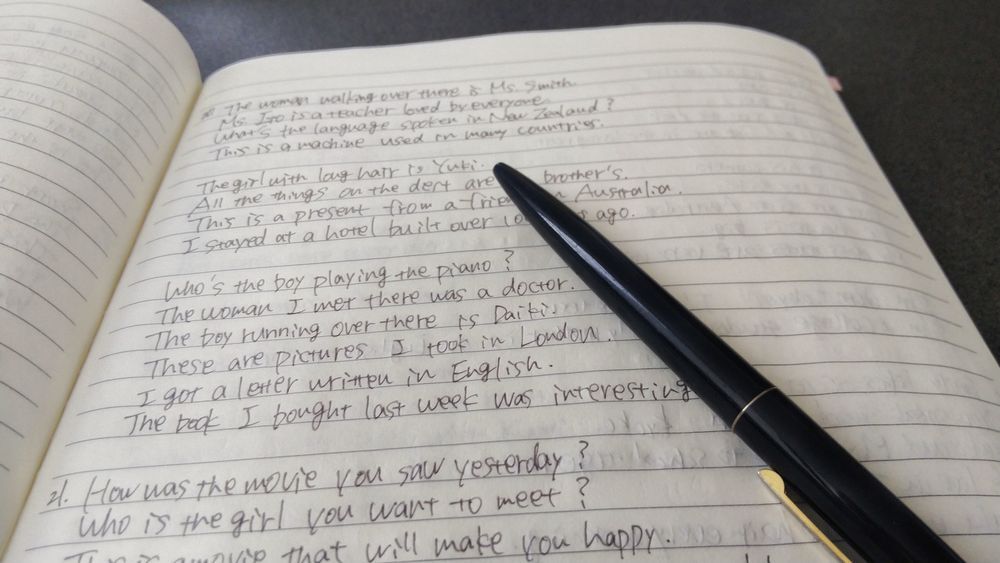 20. The woman walking over there is Ms. Smith.
Ms. Ito is a teacher loved by everyone.
What's the language spoken in New Zealand?
This is a machine used in many countries.
The girl with long hair is Yuki.
All the things on the dert are brother's.
This is a present from a in Australia.
I stayed at a hotel built over ago.
Who's the boy playing the piano?
The woman I met there was a doctor.
The boy running over there is Daiki.
These are pictures I took in London.
I got a letter written in English.
The book I bought last week was interesting
21. How was the movie you saw yesterday?
Who is the girl you want to meet?
This is a movie that will make you happy.